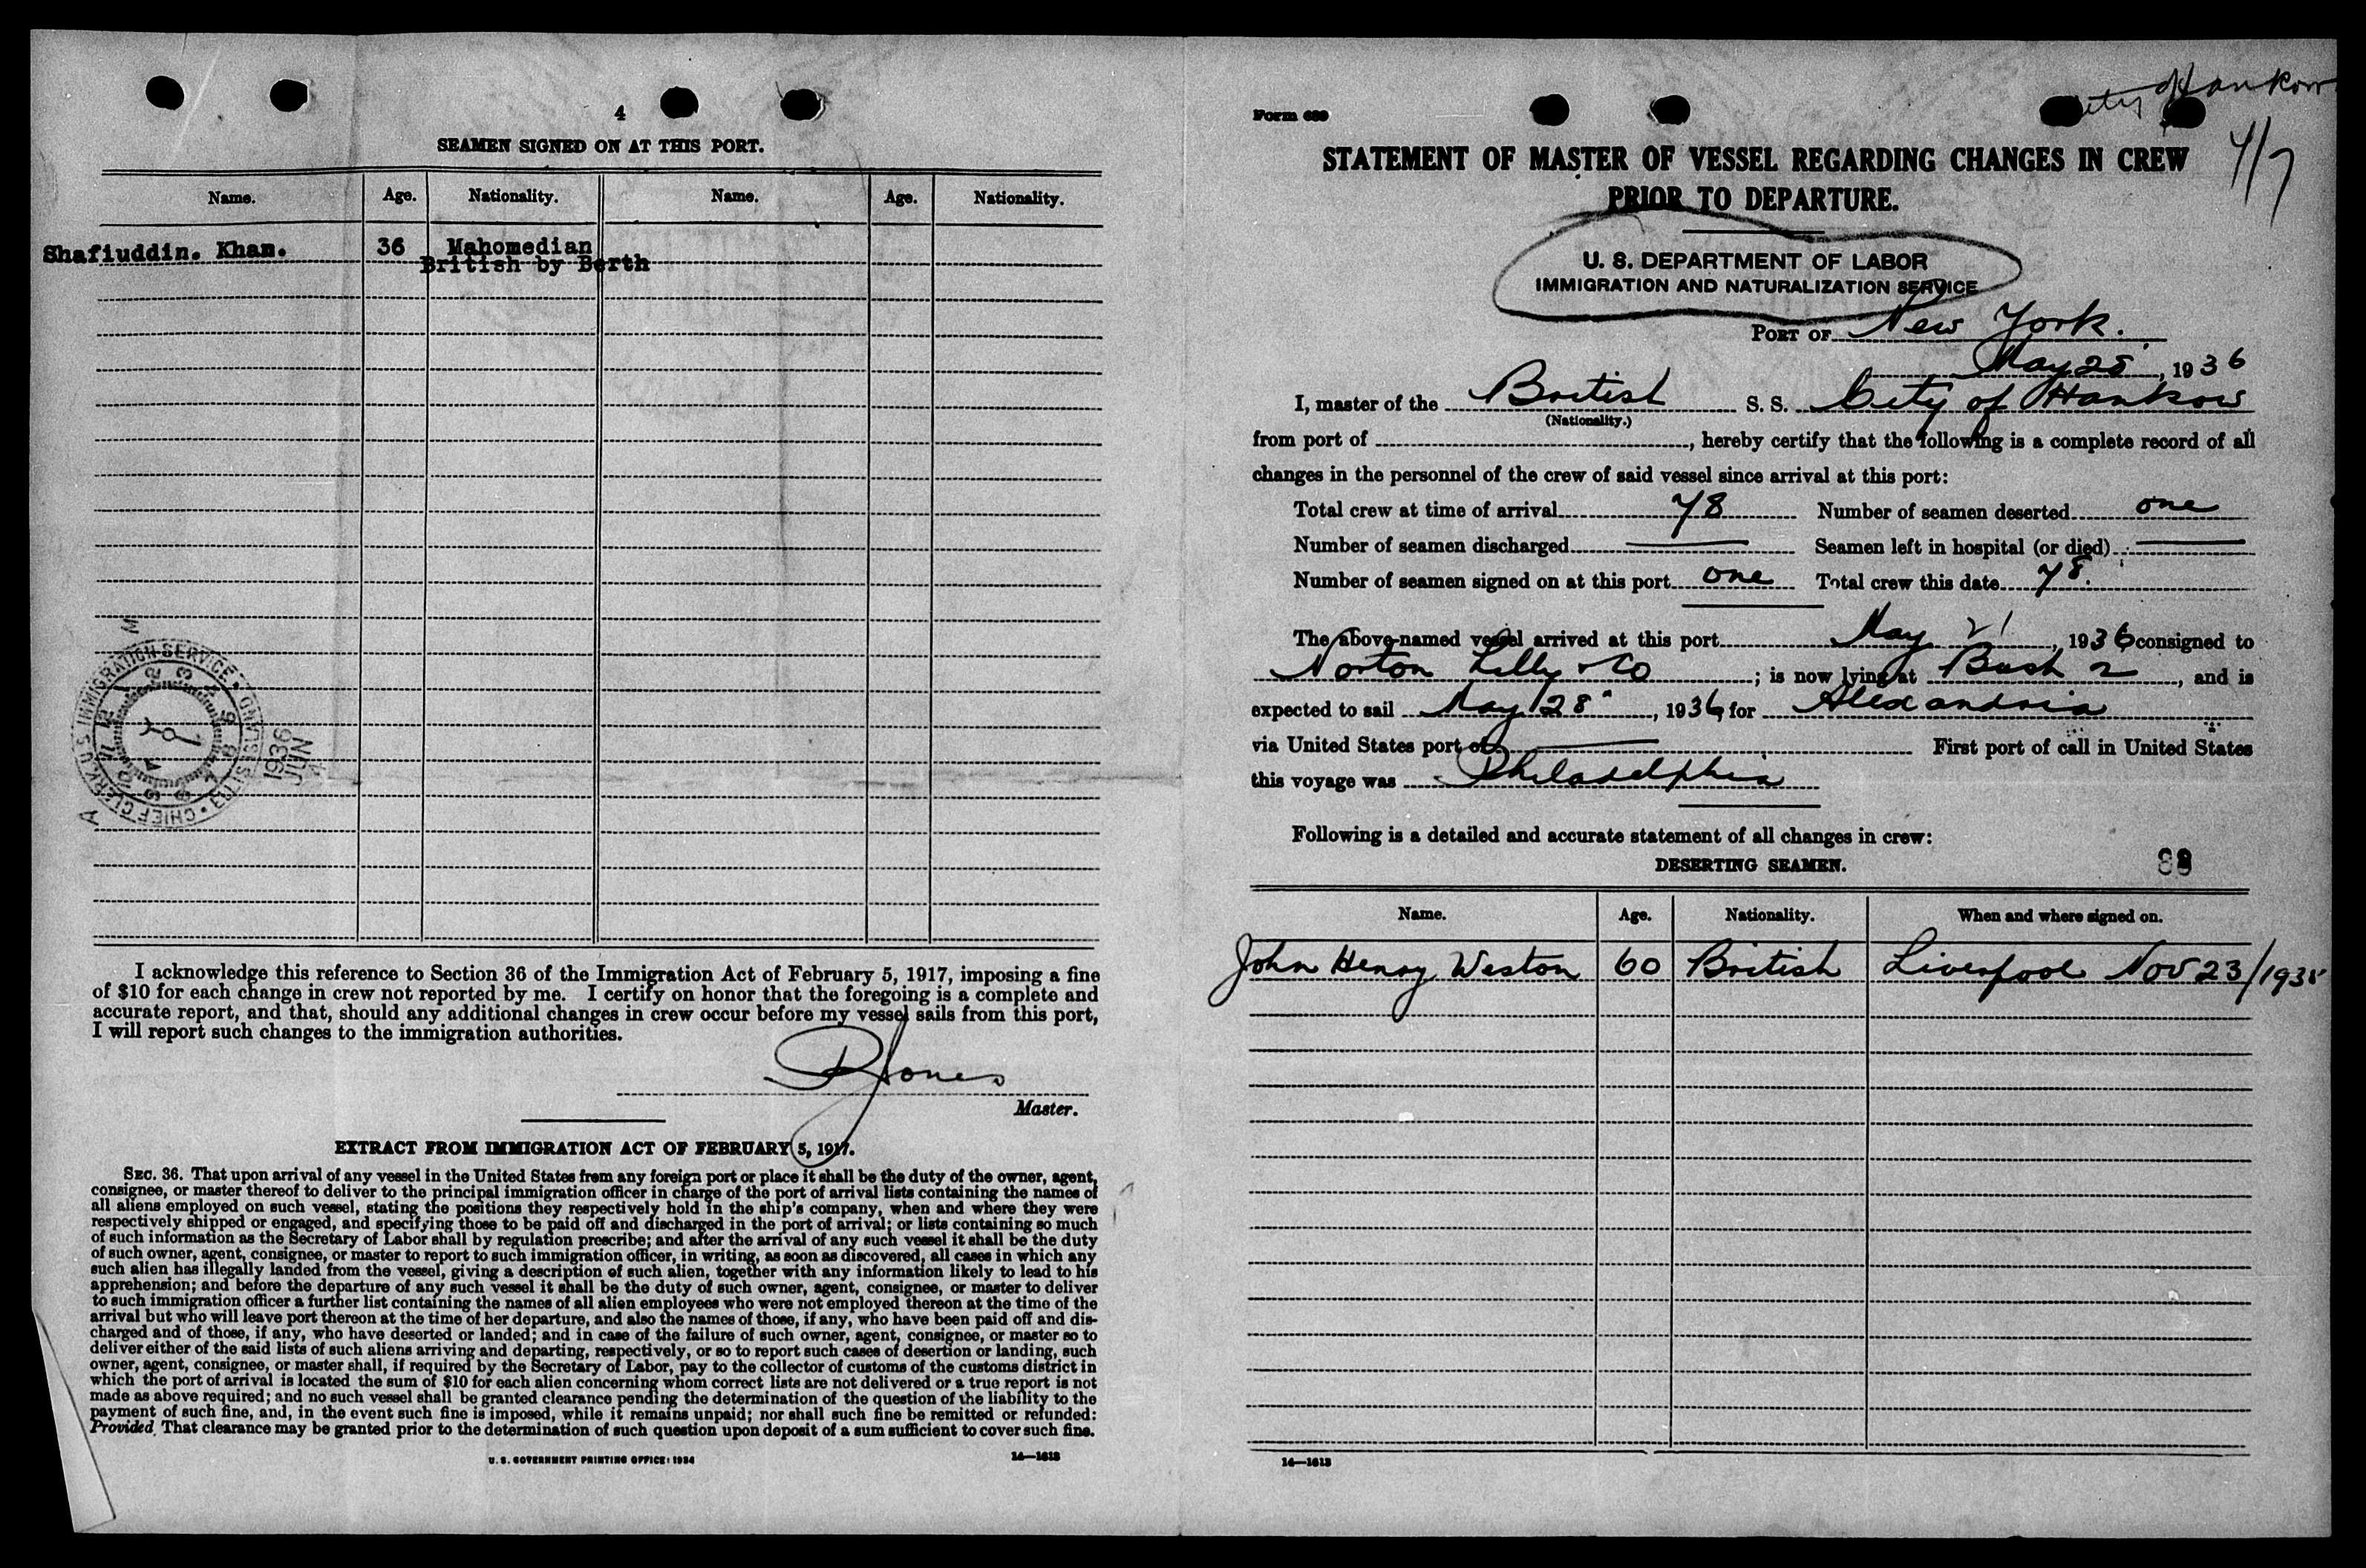 4
SEAMEN SIGNED ON AT THIS PORT.
Name. Age. Nationality. Name. Age. Nationality.
Shafiuddin. Khan. 36 Mahomedian
British by Berth
U.S. IMMIGRATION SERVICE • ELLIS ISLAND • CHIEF CLERK
1936
JUN
A
M
I acknowledge this reference to Section 36 of the Immigration Act of February 5, 1917, imposing a fine
of $10 for each change in crew not reported by me. I certify on honor that the foregoing is a complete and
accurate report, and that, should any additional changes in crew occur before my vessel sails from this port,
I will report such changes to the immigration authorities.
R Jones
Master.
EXTRACT FROM IMMIGRATION ACT OF FEBRUARY 5, 1917.
SEC. 36. That upon arrival of any vessel in the United States from any foreign port or place it shall be the duty of the owner, agent,
consignee, or master thereof to deliver to the principal immigration officer in charge of the port of arrival lists containing the names of
all aliens employed on such vessel, stating the positions they respectively hold in the ship's company, when and where they were
respectively shipped or engaged, and specifying those to be paid off and discharged in the port of arrival; or lists containing so much
of such information as the Secretary of Labor shall by regulation prescribe; and after the arrival of any such vessel it shall be the duty
of such owner, agent, consignee, or master to report to such immigration officer, in writing, as soon as discovered, all cases in which any
such alien has illegally landed from the vessel, giving a description of such alien, together with any information likely to lead to his
apprehension; and before the departure of any such vessel it shall be the duty of such owner, agent, consignee, or master to deliver
to such immigration officer a further list containing the names of all alien employees who were not employed thereon at the time of the
arrival but who will leave port thereon at the time of her departure, and also the names of those, if any, who have been paid off and dis-
charged and of those, if any, who have deserted or landed; and in case of the failure of such owner, agent, consignee, or master so to
deliver either of the said lists of such aliens arriving and departing, respectively, or so to report such cases of desertion or landing, such
owner, agent, consignee, or master shall, if required by the Secretary of Labor, pay to the collector of customs of the customs district in
which the port of arrival is located the sum of $10 for each alien concerning whom correct lists are not delivered or a true report is not
made as above required; and no such vessel shall be granted clearance pending the determination of the question of the liability to the
payment of such fine, and, in the event such fine is imposed, while it remains unpaid; nor shall such fine be remitted or refunded:
Provided, That clearance may be granted prior to the determination of such question upon deposit of a sum sufficient to cover such fine.
U. S. GOVERNMENT PRINTING OFFICE: 1934 14—1613
Hankow
Form 689
STATEMENT OF MASTER OF VESSEL REGARDING CHANGES IN CREW
PRIOR TO DEPARTURE.
U. S. DEPARTMENT OF LABOR
IMMIGRATION AND NATURALIZATION SERVICE
PORT OF New York.
May 25, 1936
I, master of the British S. S. City of Hankow
(Nationality.)
from port of , hereby certify that the following is a complete record of all
changes in the personnel of the crew of said vessel since arrival at this port:
Total crew at time of arrival 78 Number of seamen deserted one
Number of seamen discharged Seamen left in hospital (or died)
Number of seamen signed on at this port one Total crew this date 78.
The above-named vessel arrived at this port May 21, 1936 consigned to
Norton Lilly & Co ; is now lying at Bush 2, and is
expected to sail May 28, 1936, for Alexandria
via United States port of First port of call in United States
this voyage was Philadelphia
Following is a detailed and accurate statement of all changes in crew:
DESERTING SEAMEN.
Name. Age. Nationality. When and where signed on.
John Henry Weston 60 British Liverpool Nov 23/1935
14—1613